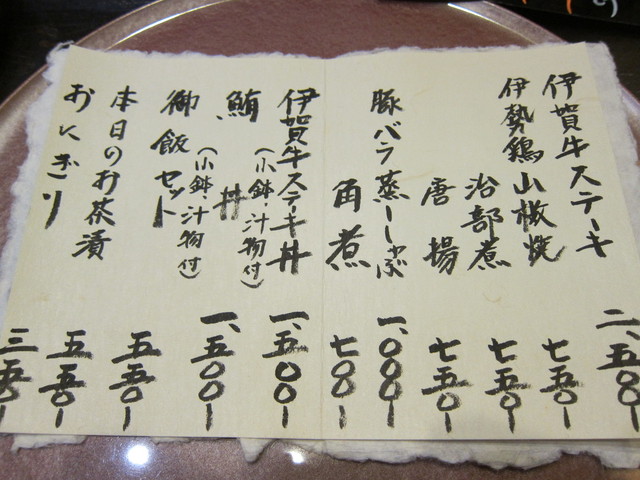 伊賀牛ステーキ 二、五〇〇-
伊勢鶏山椒焼 七五〇-
治部煮 七五〇-
唐揚 七五〇-
豚バラ蒸ししゃぶ 一、〇〇〇-
角煮 七〇〇-
伊賀牛ステーキ丼 一、五〇〇-
(小鉢、汁物付)
鮪丼 一、五〇〇-
(小鉢、汁物付)
御飯セット 五五〇-
(小鉢、汁物付)
本日のお茶漬 五五〇-
おにぎり 三五〇-